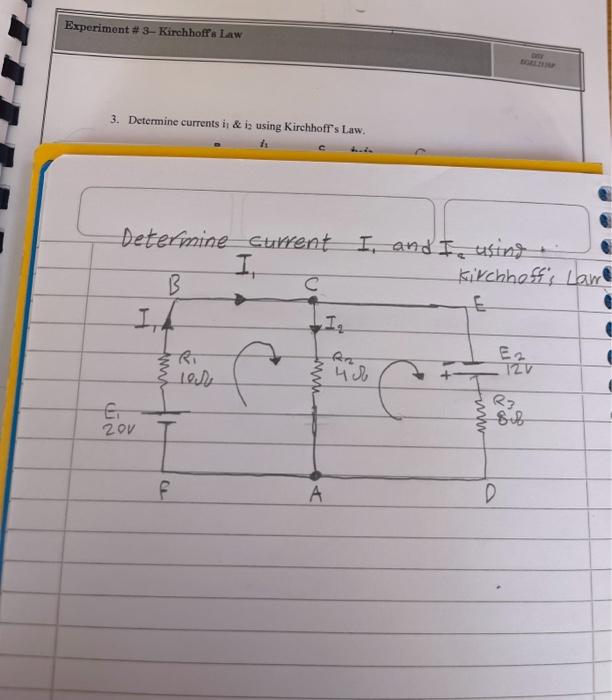 Experiment # 3– Kirchhoff's Law
3. Determine currents i₁ & i₂ using Kirchhoff's Law.
i₁
C
Determine current I₁ and I₂ using
Kirchhoff's Law
I₁
B
C
E
I₁
I₂
R₁
10Ω
R₂
4Ω
E₂
12V
+
R₃
8Ω
E₁
20V
F
A
D